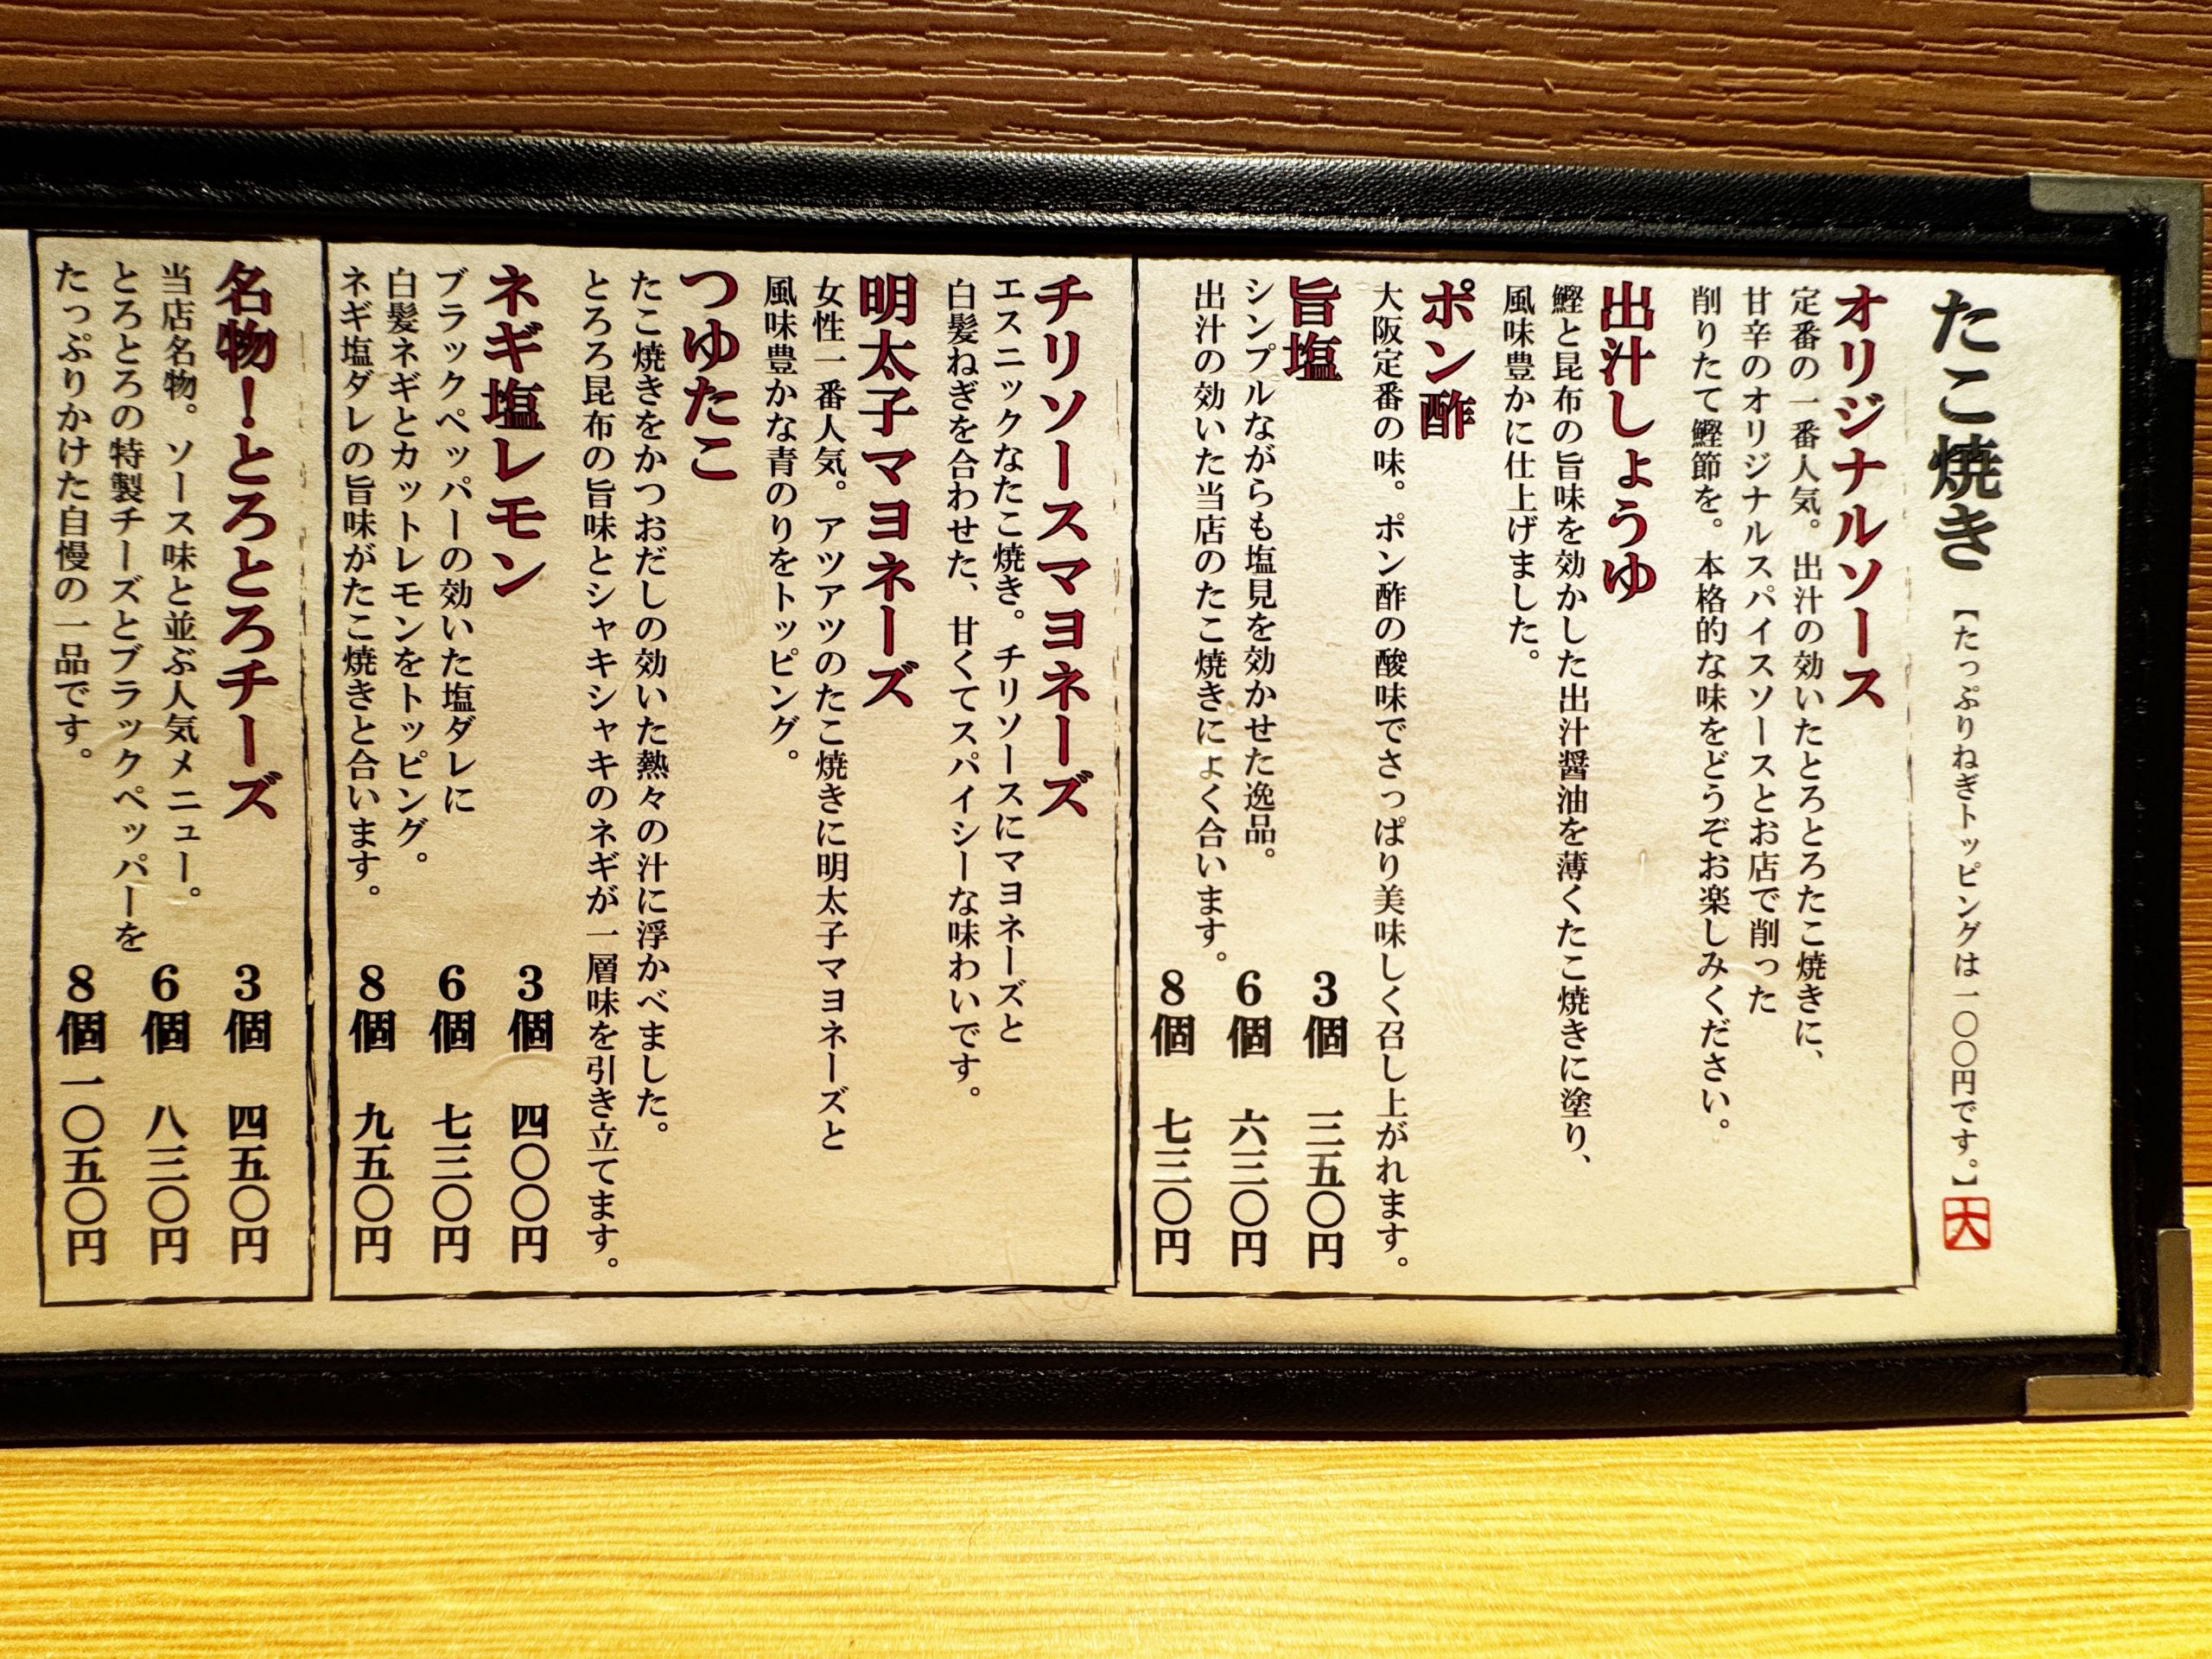 たこ焼き 【たっぷりねぎトッピングは一〇〇円です。】 大
オリジナルソース
定番の一番人気。出汁の効いたとろとろたこ焼きに、
甘辛のオリジナルスパイスソースとお店で削った
削りたて鰹節を。本格的な味をどうぞお楽しみください。
出汁しょうゆ
鰹と昆布の旨味を効かした出汁醤油を薄くたこ焼きに塗り、
風味豊かに仕上げました。
ポン酢
大阪定番の味。ポン酢の酸味でさっぱり美味しく召し上がれます。
旨塩
シンプルながらも塩見を効かせた逸品。
出汁の効いた当店のたこ焼きによく合います。
3個 三五〇円
6個 六三〇円
8個 七三〇円
チリソースマヨネーズ
エスニックなたこ焼き。チリソースにマヨネーズと
白髪ねぎを合わせた、甘くてスパイシーな味わいです。
明太子マヨネーズ
女性一番人気。アツアツのたこ焼きに明太子マヨネーズと
風味豊かな青のりをトッピング。
つゆたこ
たこ焼きをかつおだしの効いた熱々の汁に浮かべました。
とろろ昆布の旨味とシャキシャキのネギが一層味を引き立てます。
ネギ塩レモン
ブラックペッパーの効いた塩ダレに
白髪ネギとカットレモンをトッピング。
ネギ塩ダレの旨味がたこ焼きと合います。
3個 四〇〇円
6個 七三〇円
8個 九五〇円
名物！とろとろチーズ
当店名物。ソース味と並ぶ人気メニュー。
とろとろの特製チーズとブラックペッパーを
たっぷりかけた自慢の一品です。
3個 四五〇円
6個 八三〇円
8個 一〇五〇円